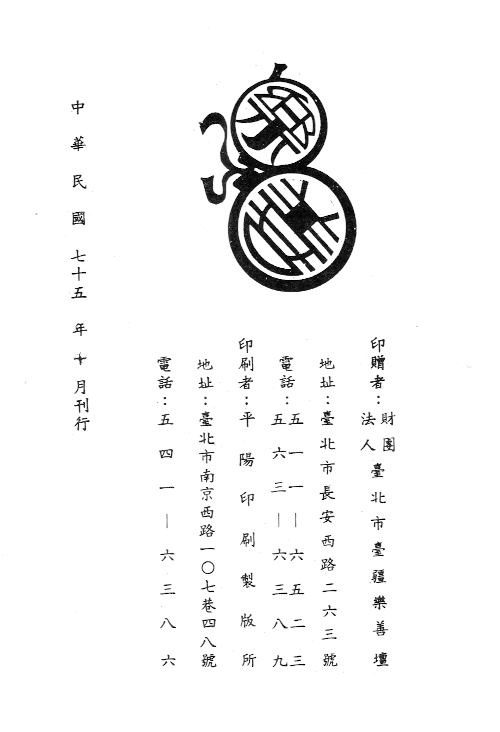 印贈者：財團法人臺北市臺疆樂善壇
地址：臺北市長安西路二六三號
電話：五一一｜六五二三
五六三｜六三八九
印刷者：平陽印刷製版所
地址：臺北市南京西路一〇七巷四八號
電話：五四一｜六三八六
中華民國七十五年十月刊行